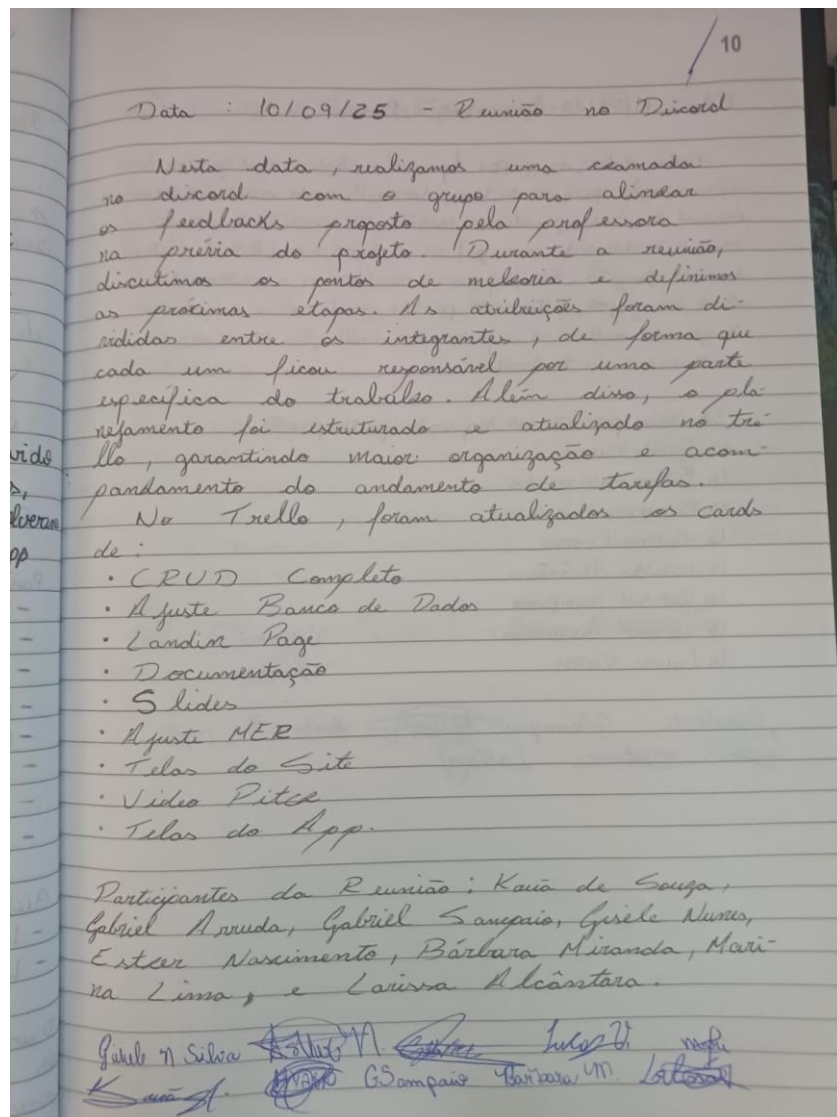 10
Data : 10/09/25 - Reunião no Discord
Nesta data, realizamos uma chamada
no discord com o grupo para alinhar
os feedbacks proposto pela professora
na prévia do projeto. Durante a reunião,
discutimos os pontos de melhoria e definimos
as próximas etapas. As atribuições foram di-
vididas entre os integrantes, de forma que
cada um ficou responsável por uma parte
específica do trabalho. Além disso, o pla-
nejamento foi estruturado e atualizado no tre-
llo, garantindo maior organização e acom-
panhamento do andamento de tarefas.
No Trello, foram atualizados os cards
de :
• CRUD Completo
• Ajuste Banco de Dados
• Landin Page
• Documentação
• Slides
• Ajuste MER
• Telas do Site
• Video Pitch
• Telas do App.
Participantes da Reunião : Kauã de Souza,
Gabriel Arruda, Gabriel Sampaio, Gisele Nunes,
Esther Nascimento, Bárbara Miranda, Mari-
na Lima, e Larissa Alcântara.
Gisele N Silva Lucas V.
GSampaio Barbara M.
vido